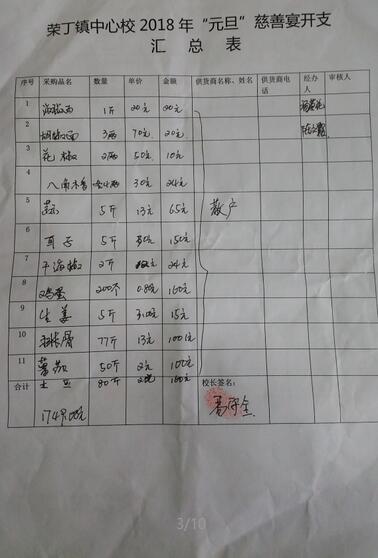 荣丁镇中心校 2018 年“元旦”慈善宴开支
汇 总 表
序号 采购品名 数量 单价 金额 供货商名称、姓名 供货商电话 经办人 审核人
1 1斤 20元 20元
2 3两 70元 20元
3 花椒 2两 50元 10元
4 八角 30元 24元
5 5斤 13元 65元 散户
6 耳子 5斤 30元 150元
7 干海椒 2斤 12元 24元
8 鸡蛋 200个 0.8元 160元
9 生姜 5斤 3.00元 15元
10 77斤 13元 1001元
11 50斤 2元 100元
土豆 80斤 2元 160元
合计 校长签名:
1749.00元
3/10